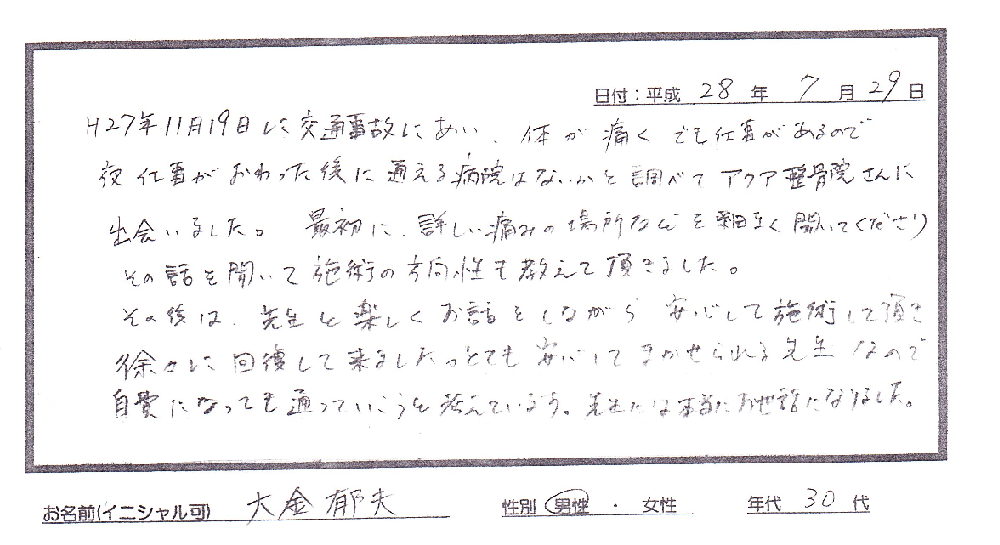 日付:平成 28 年 7 月 29 日
H27年11月19日に交通事故にあい、体が痛くでも仕事があるので
夜仕事がおわった後に通える病院はないかと調べてアクア整骨院さんに
出会いました。最初に、詳しい痛みの場所などを細まく聞いてくださり
その話を聞いて施術の方向性も教えて頂きました。
その後は、先生と楽しくお話をしながら安心して施術して頂き
徐々に回復して来ましたっとても安心してまかせられる先生なので
自費になっても通っていこうと考えています。先生には本当にお世話になりました。
お名前(イニシャル可) 大金郁夫 性別 男性 ・ 女性 年代 30 代